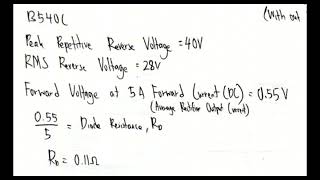 B540C (With out
Peak Repetitive Reverse Voltage = 40V
RMS Reverse Voltage = 28V
Forward Voltage at 5A Forward Current (DC) = 0.55V
(Average Rectifier Output Current)
0.55
5
= Diode Resistance, RD
RD = 0.11Ω